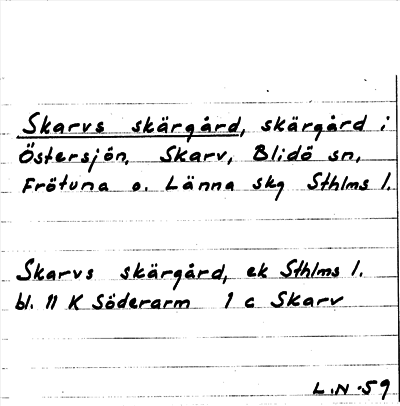 Skarvs skärgård, skärgård i
Östersjön, Skarv, Blidö sn,
Frötuna o. Länna skg Sthlms l.
Skarvs skärgård, ek Sthlms l.
bl. 11 K Söderarm 1 c Skarv
L.N.59